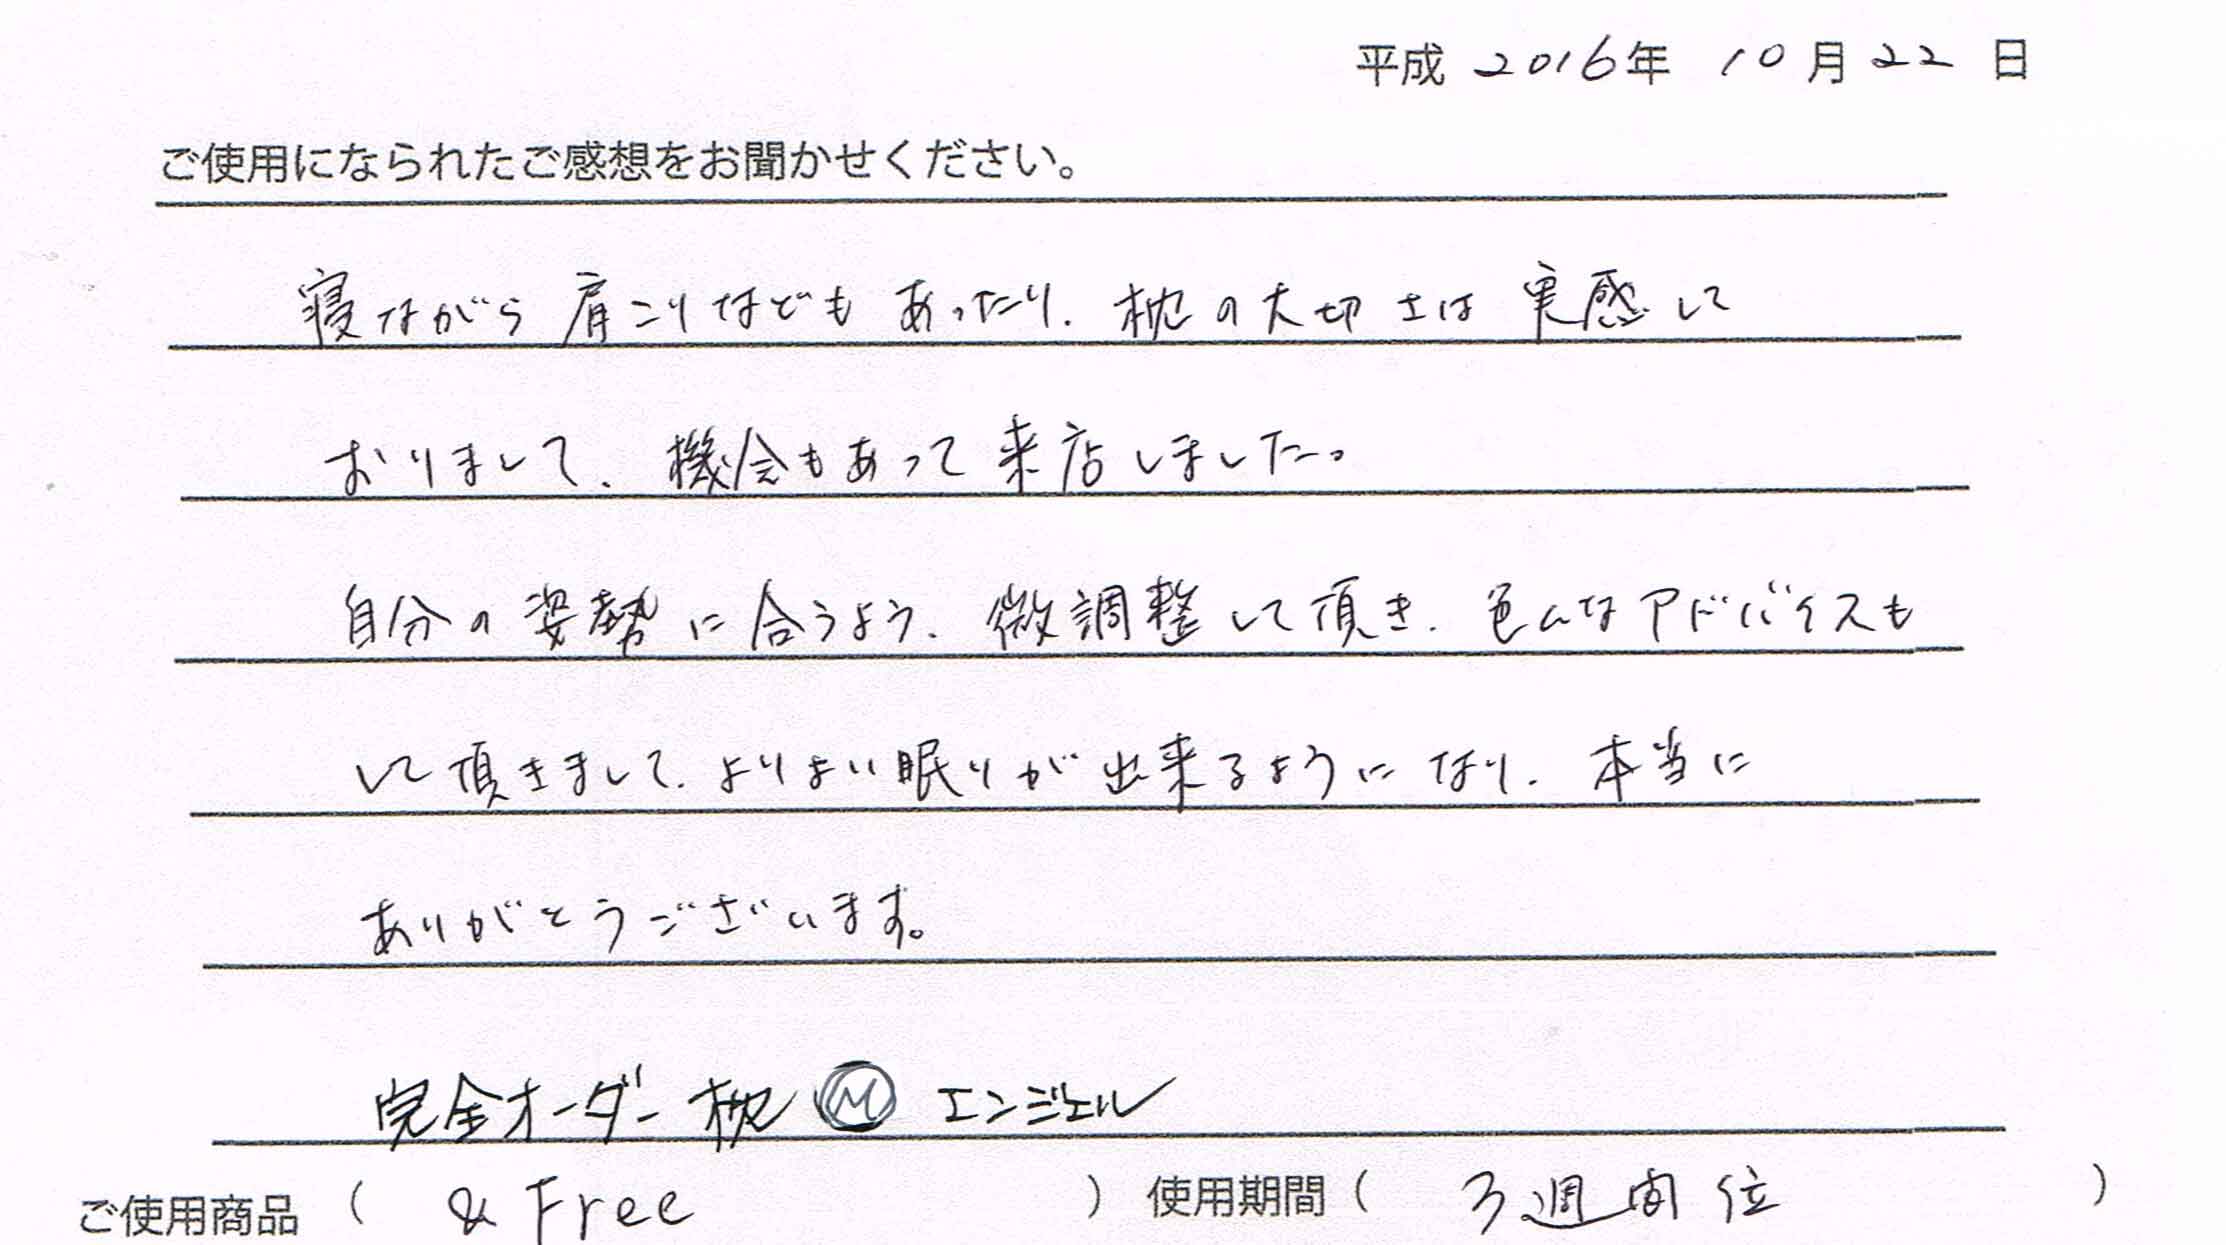 平成 2016年 10月22日
ご使用になられたご感想をお聞かせください。
寝ながら肩こりなどもあったり、枕の大切さは実感して
おりまして、機会もあって来店しました。
自分の姿勢に合うよう、微調整して頂き、色んなアドバイスも
して頂きまして、よりよい眠りが出来るようになり、本当に
ありがとうございます。
完全オーダー枕 Ⓜ エンジェル
ご使用商品 ( & Free ) 使用期間 ( 3週間位 )